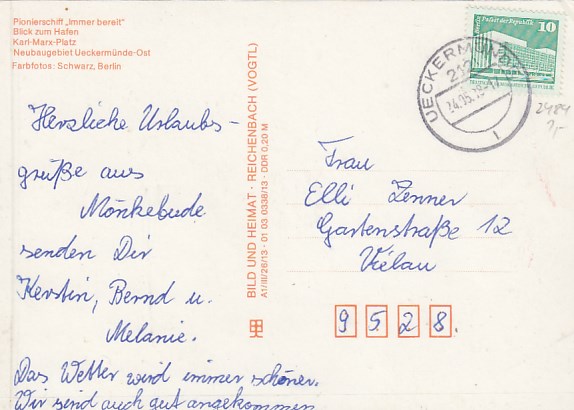 Pionierschiff „Immer bereit"
Blick zum Hafen
Karl-Marx-Platz
Neubaugebiet Ueckermünde-Ost
Farbfotos: Schwarz, Berlin
Herzliche Urlaubs-
grüße aus
Mönkebude
senden Dir
Kerstin, Bernd u.
Melanie.
Das Wetter wird immer schöner.
Wir sind auch gut angekommen
BILD UND HEIMAT · REICHENBACH (VOGTL)
A1/III/26/13 · 01 03 0338/13 · DDR 0,20 M
Palast der Republik
10
UECKERMÜNDE
24.05.
1
2484
1,-
Frau
Elli Zenner
Gartenstraße 12
Vielau
9528.